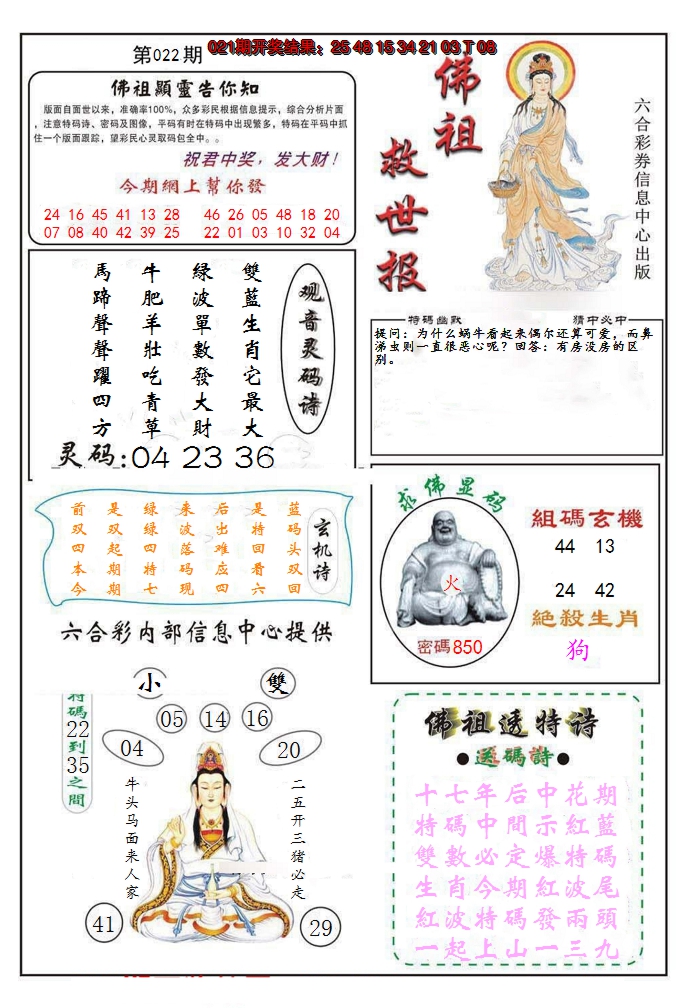 021期开奖结果：25 48 15 34 21 03 T 08
第022期
佛祖顯靈告你知
版面自面世以来，准确率100%，众多彩民根据信息提示，综合分析片面
，注意特码诗、密码及图像，平码有时在特码中出现繁多，特码在平码中抓
住一个版面跟踪，望彩民心灵取码包全中。。
祝君中奖，发大财！
今期網上幫你發
24 16 45 41 13 28 46 26 05 48 18 20
07 08 40 42 39 25 22 01 03 10 32 04
佛祖
救世报
六合彩券信息中心出版
雙藍生肖它最大
綠波單數發大財
牛肥羊壯吃青草
馬蹄聲聲躍四方
观音灵码诗
灵码:04 23 36
特碼幽默
猜中必中
提问：为什么蜗牛看起来偶尔还算可爱，而鼻
涕虫则一直很恶心呢？回答：有房没房的区
别。
前是绿来后是蓝
双双绿波出特码
四起四落难回头
本期特码应看双
今期七现四六回
玄机诗
六合彩内部信息中心提供
求佛显码
火
密碼850
組碼玄機
44 13
24 42
絶殺生肖
狗
小
雙
特碼22到35之間
05
14
16
04
20
牛头马面来人家
二五开三猪必走
41
29
佛祖透特诗
●送碼詩●
十七年后中花期
特碼中間示紅藍
雙數必定爆特碼
生肖今期紅波尾
紅波特碼發兩頭
一起上山一三九